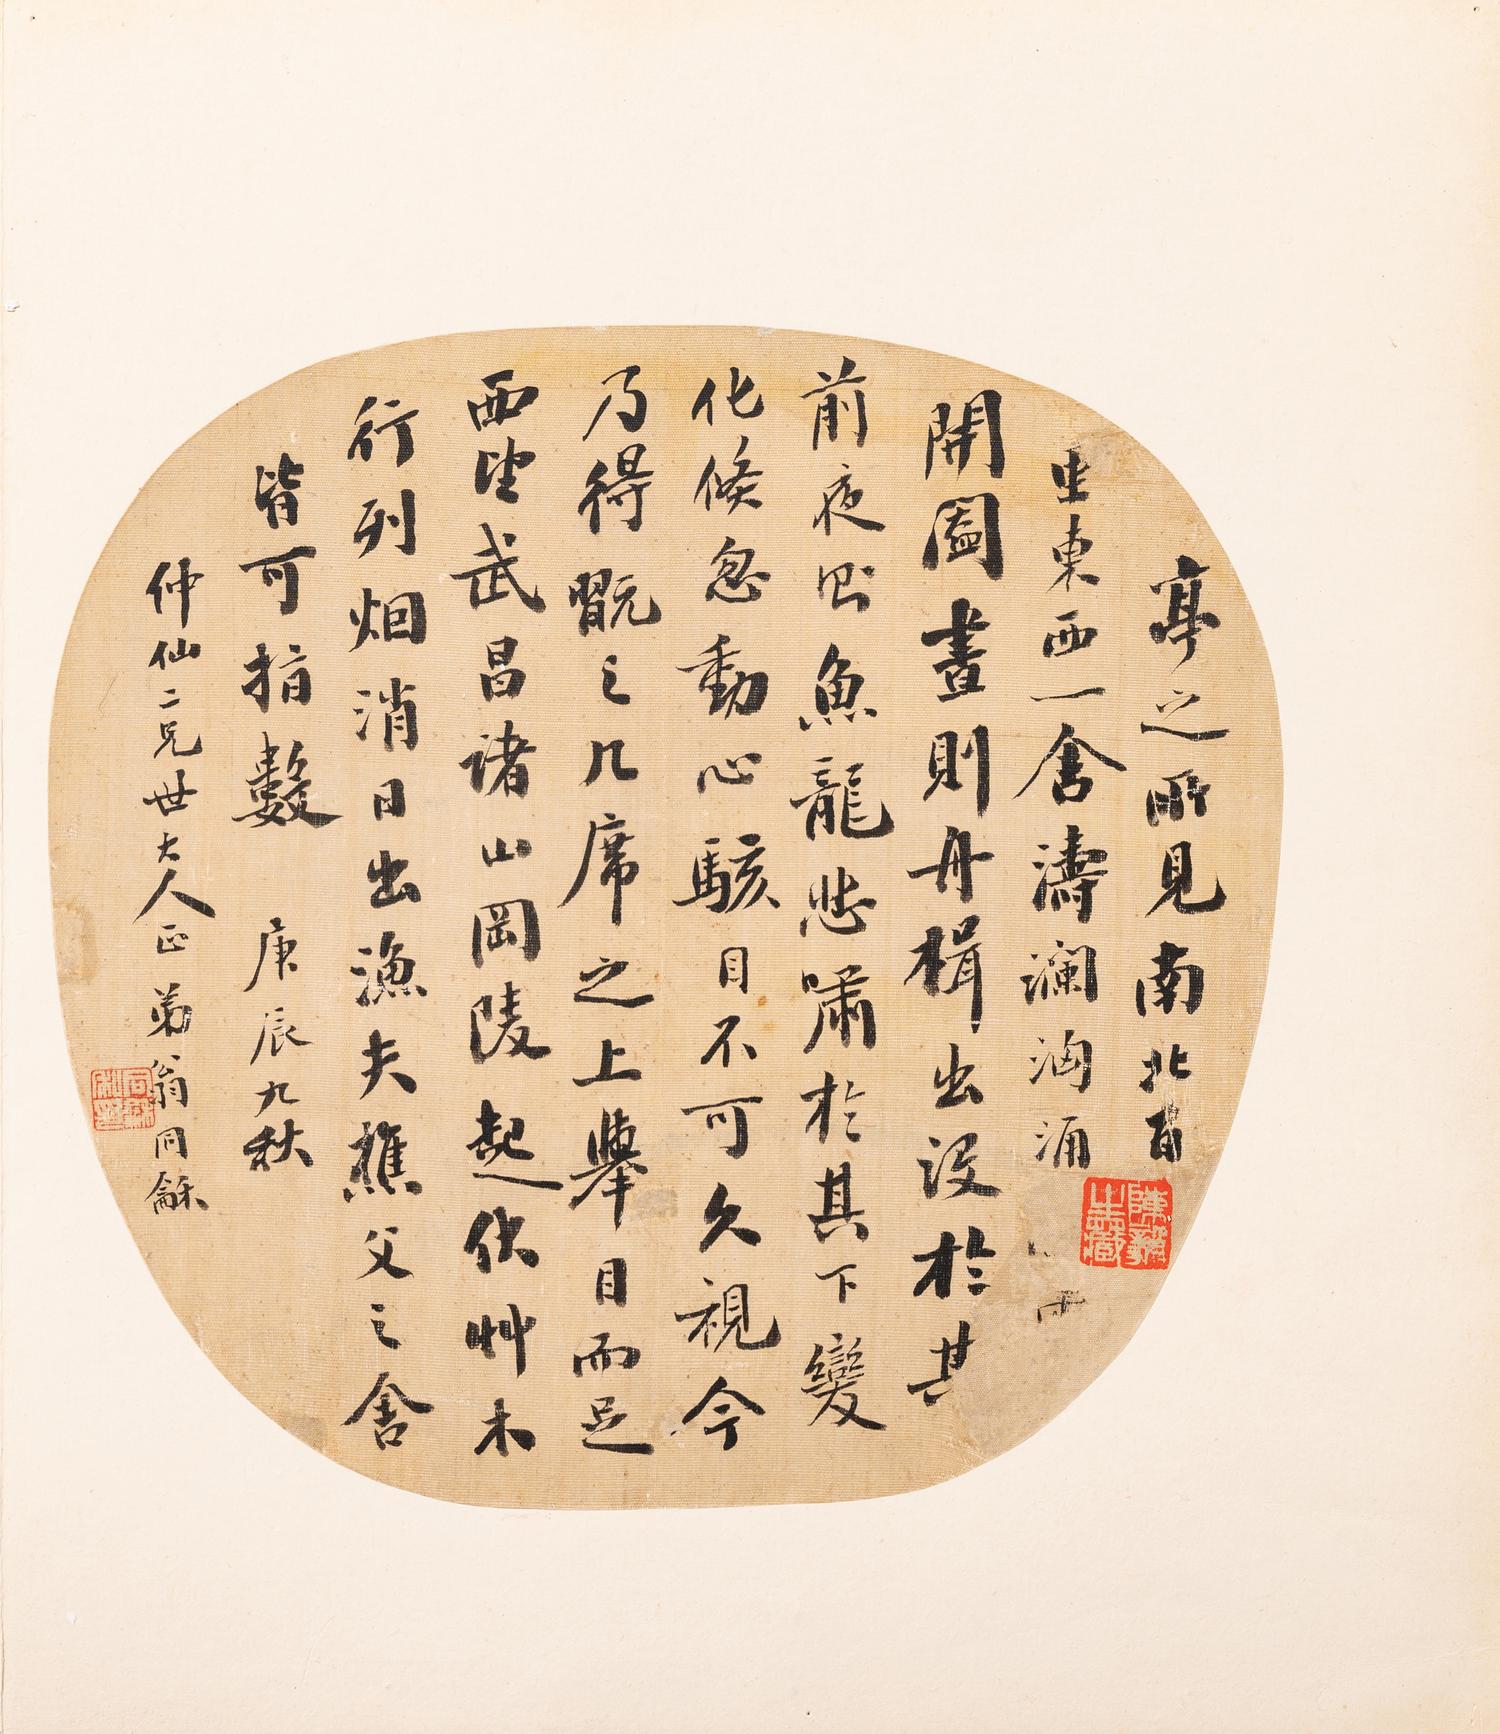 亭之所見南北百
里東西一舍濤瀾洶涌
開闔晝則舟楫出沒於其
前夜則魚龍悲嘯於其下變
化倏忽動心駭目不可久視今
乃得翫之几席之上舉目而足
西望武昌諸山岡陵起伏艸木
行列烟消日出漁夫樵父之舍
皆可指數 庚辰九秋
仲仙二兄世大人正 弟翁同龢